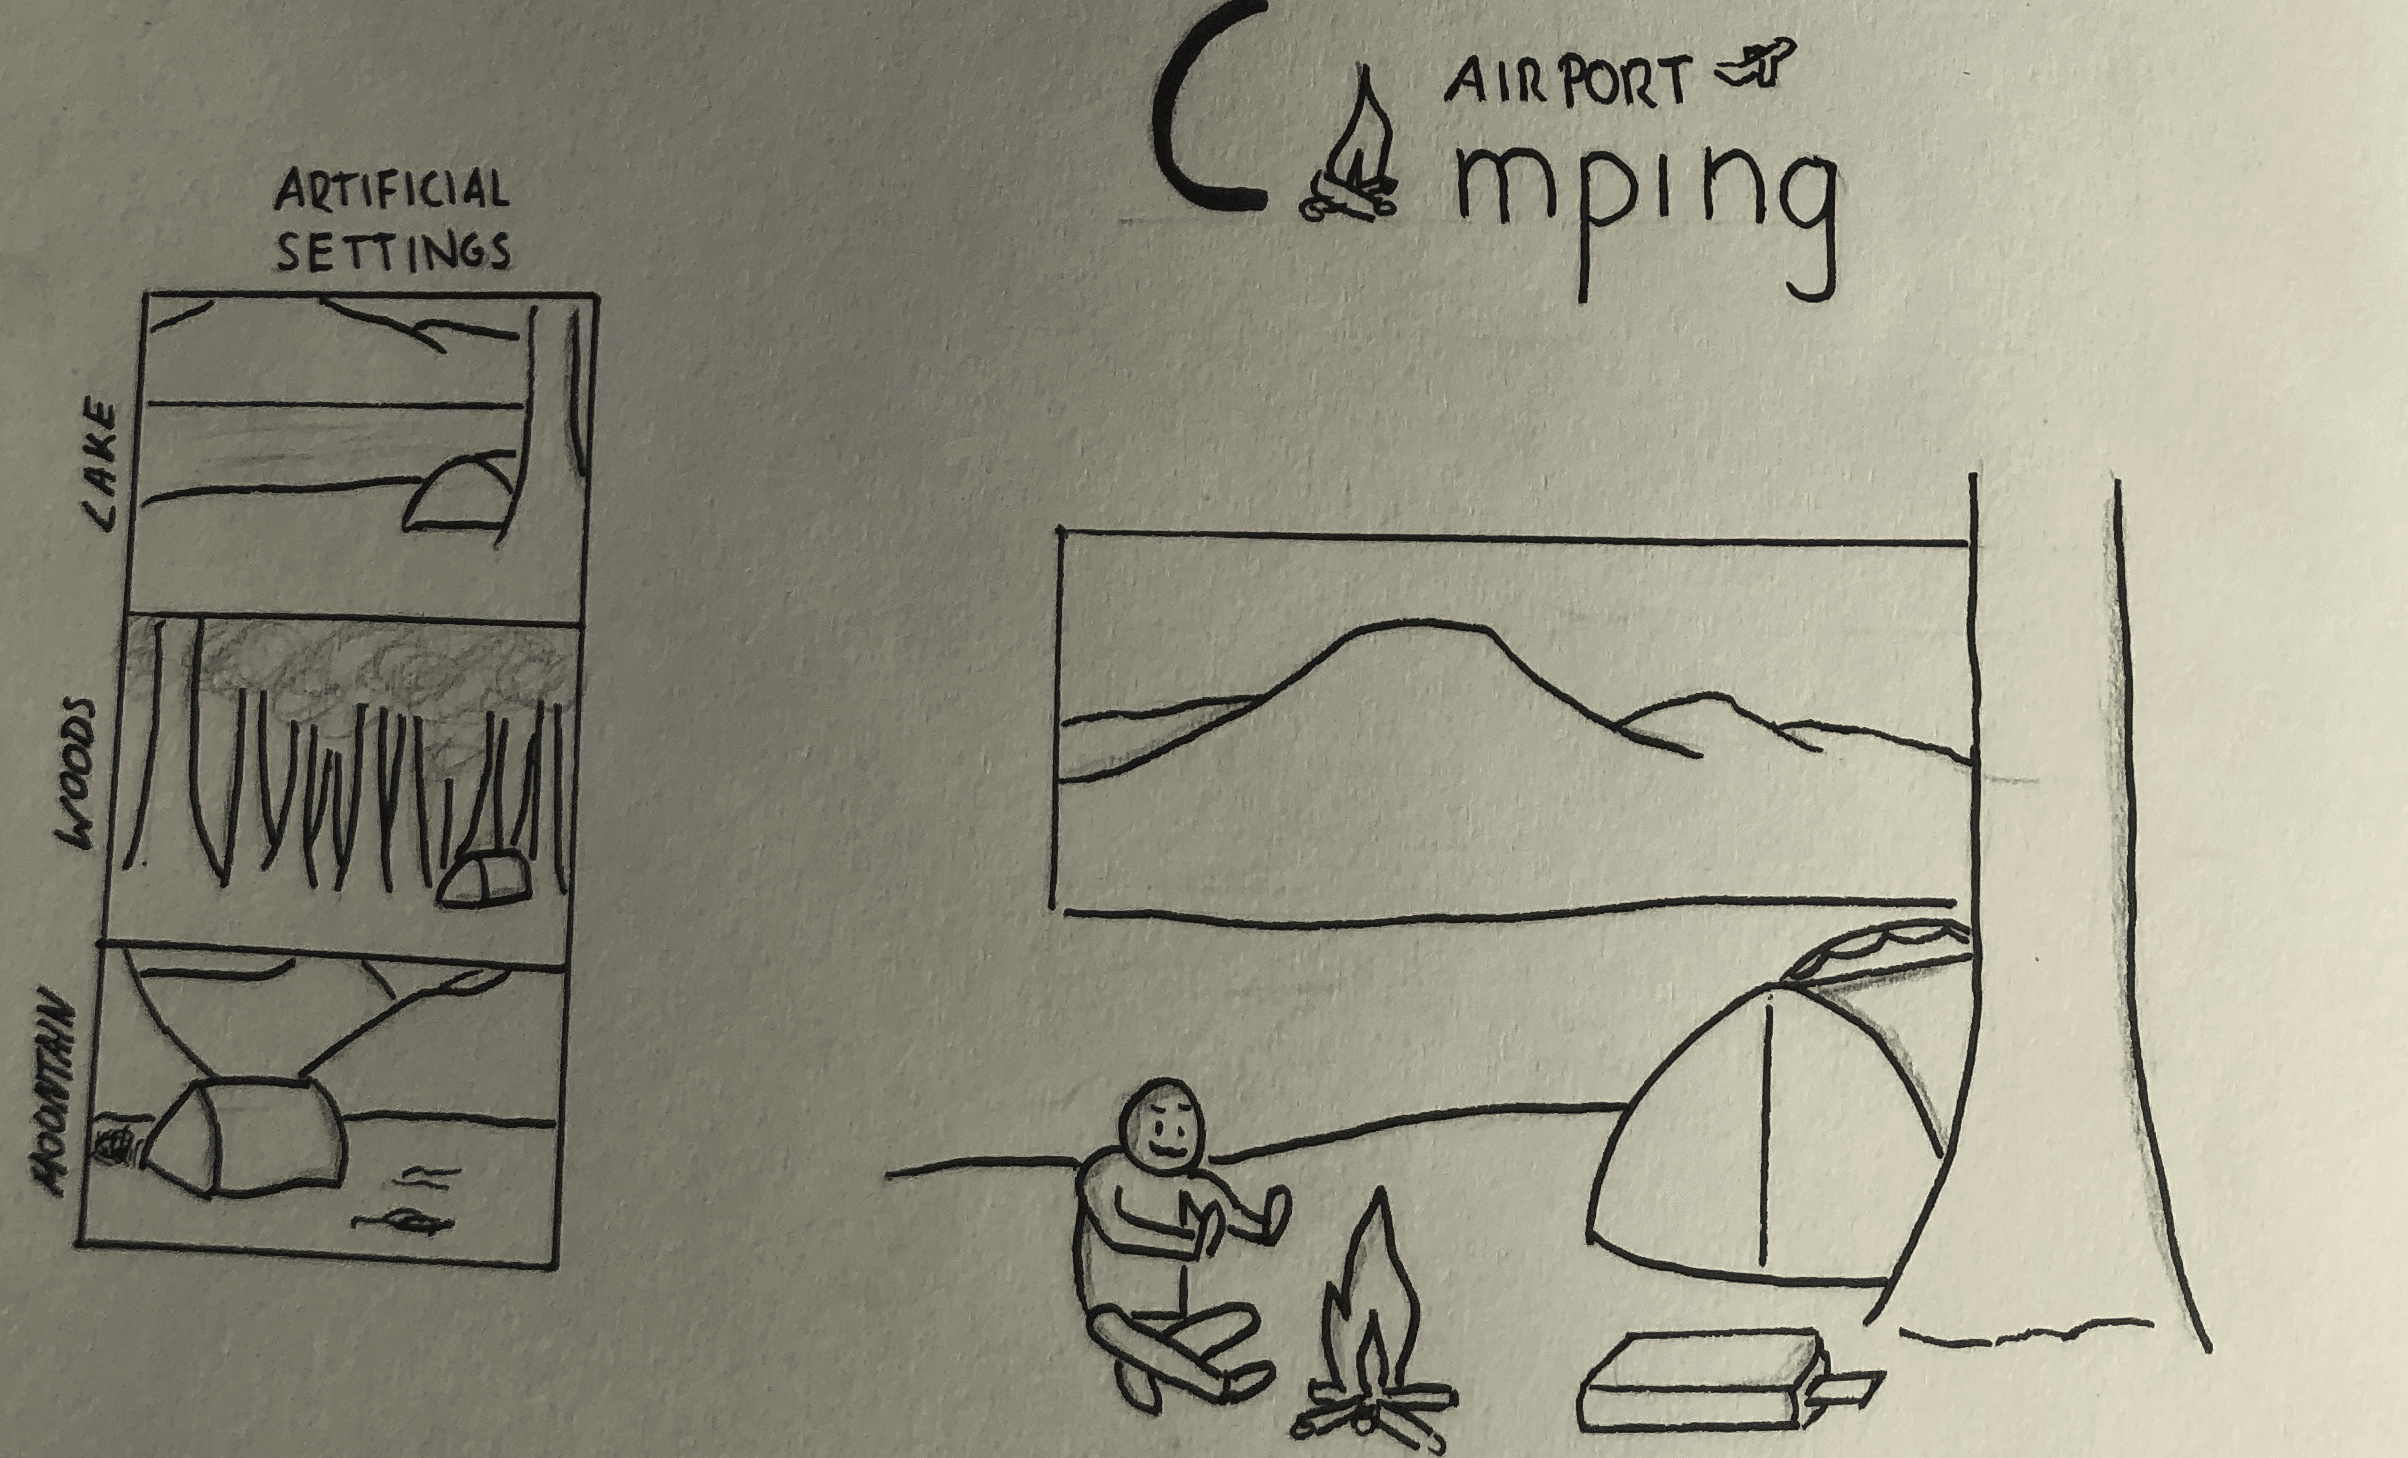 AIRPORT
C mping
ARTIFICIAL
SETTINGS
LAKE
WOODS
MOUNTAIN